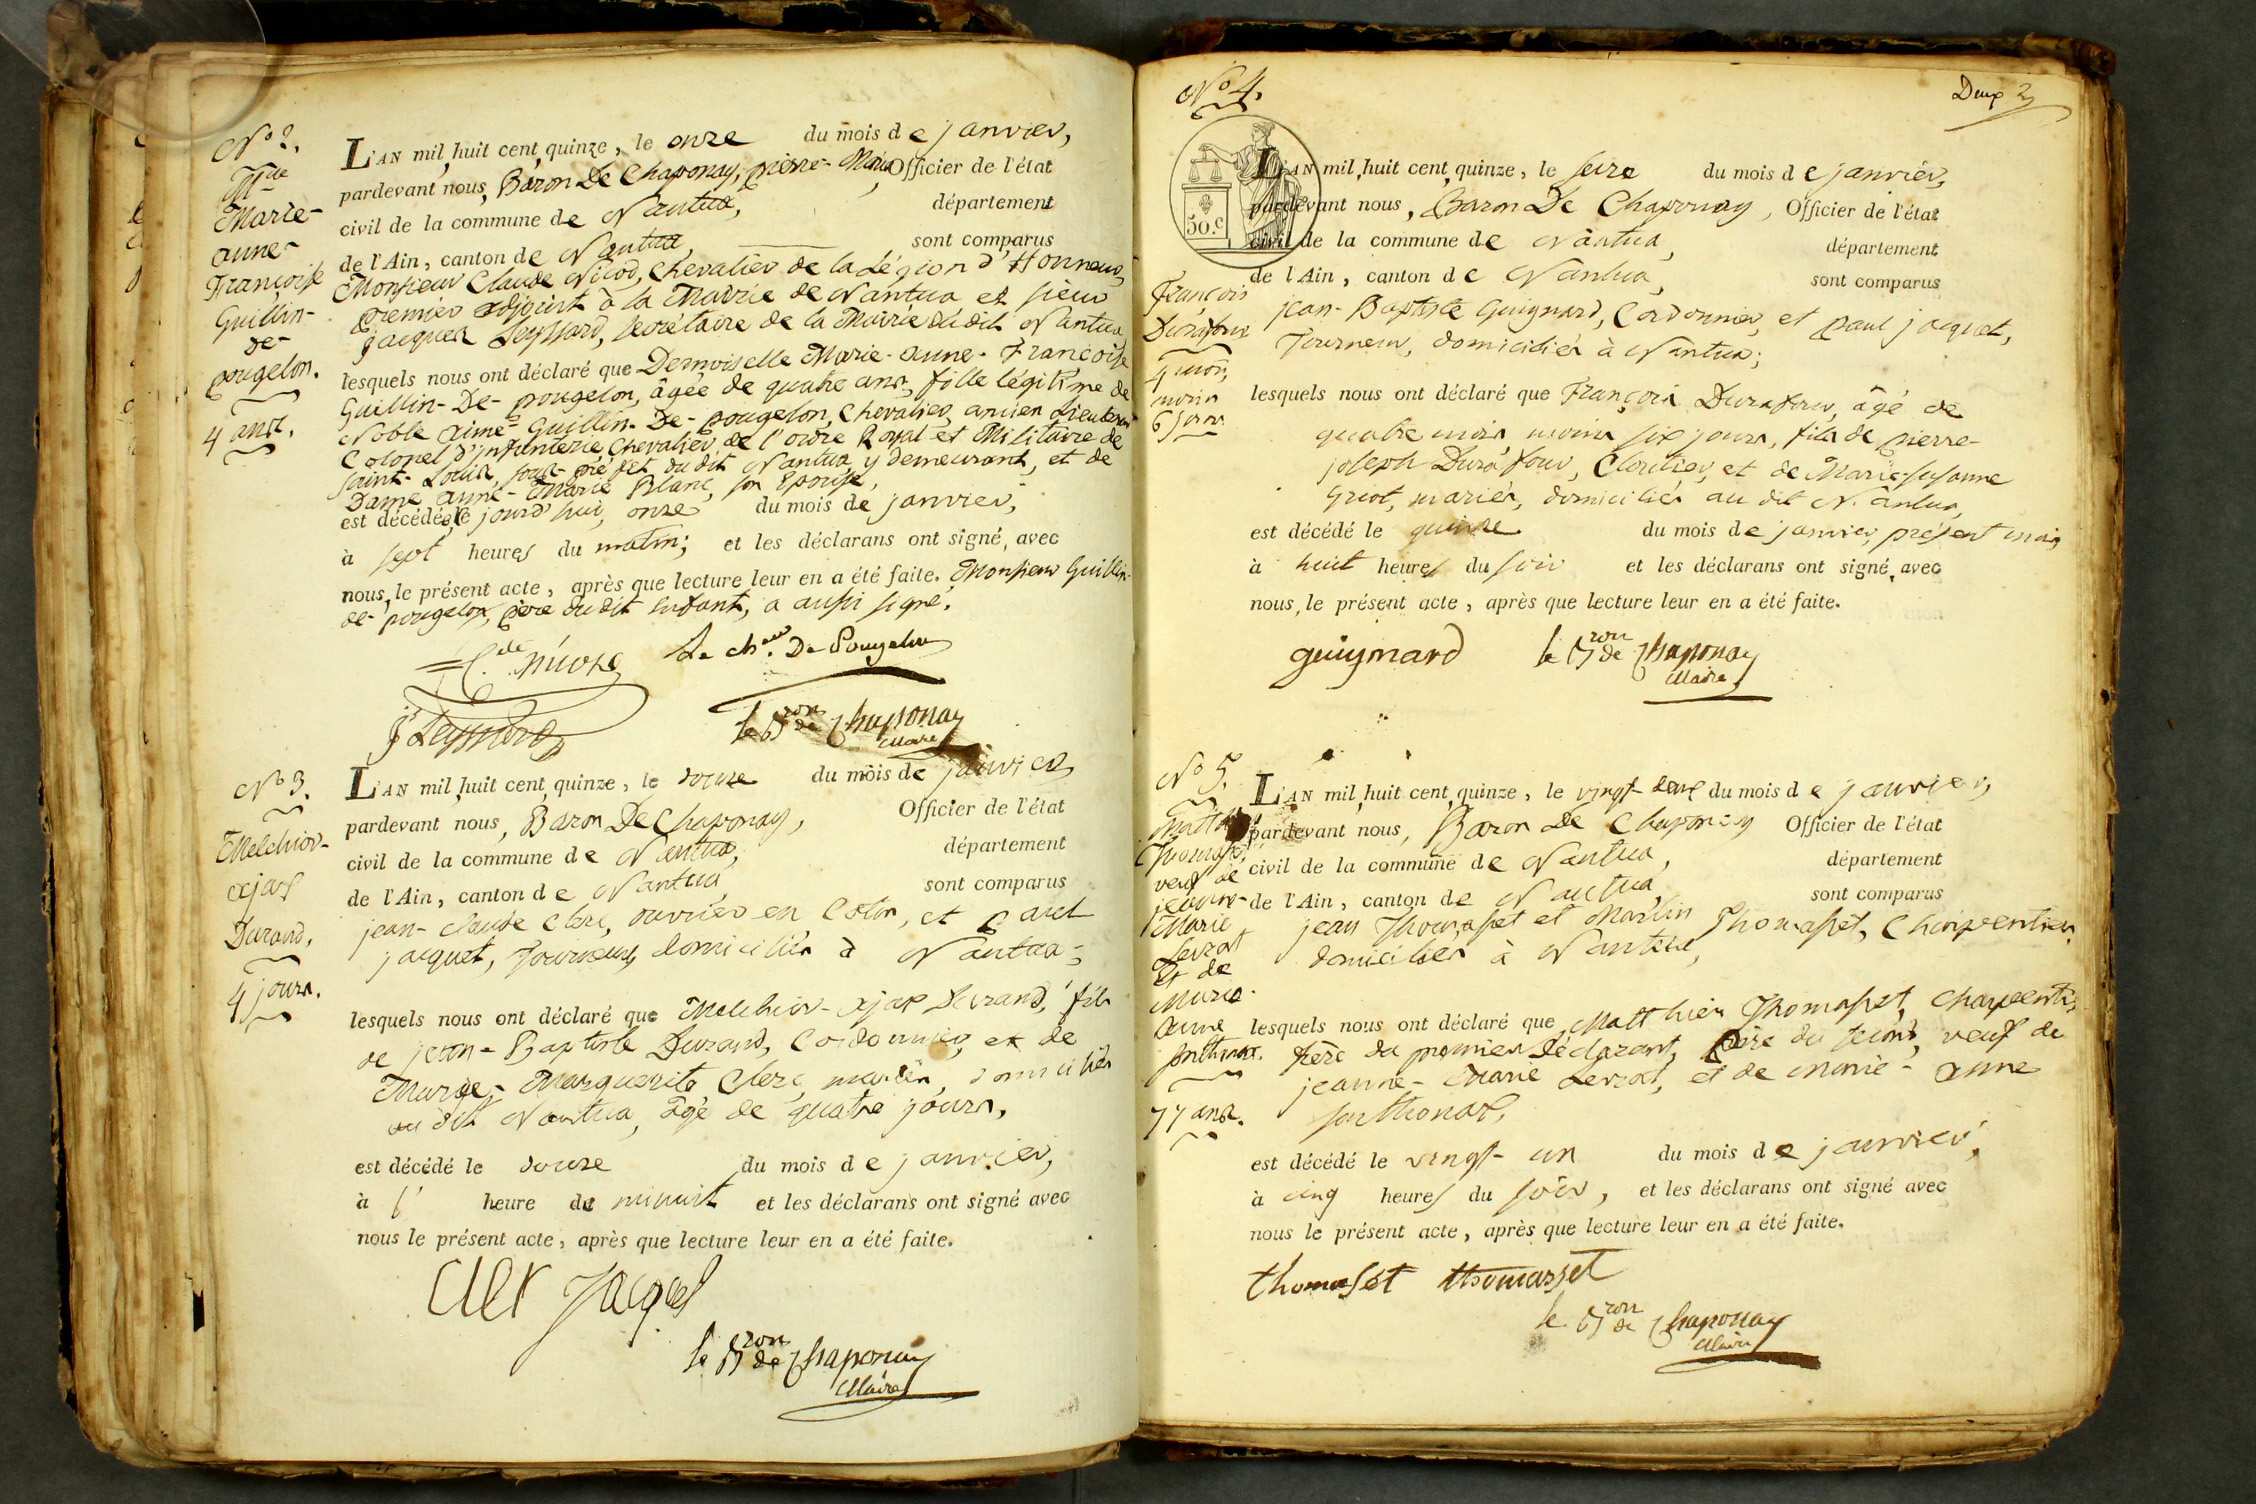 N° 2.
Mlle
Marie-
anne-
Françoise
Guillin-
de-
pougelon.
4 ans.
L'AN mil huit cent quinze, le onze du mois de janvier,
pardevant nous, Baron De Chaponay, pierre-Marie Officier de l'état
civil de la commune de Nantua, département
de l'Ain, canton de Nantua, sont comparus
Monsieur Claude Nicod, Chevalier de la Légion d'Honneur,
premier adjoint à la Mairie de Nantua et sieur
jacques Seyssard, secrétaire de la Mairie dudit Nantua
lesquels nous ont déclaré que Demoiselle Marie-anne-Françoise
Guillin-De-pougelon, âgée de quatre ans, fille légitime de
Noble aimé-Guillin-De-pougelon, Chevalier, ancien Lieutenant
Colonel d'infanterie, Chevalier de l'ordre Royal et Militaire de
Saint-Louis, sous-préfet dudit Nantua y demeurant, et de
Dame anne-Marie Blanc, son Epouse,
est décédée le jourd'hui, onze du mois de janvier,
à sept heures du matin; et les déclarans ont signé, avec
nous, le présent acte, après que lecture leur en a été faite. Monsieur Guillin-
de-pougelon, père dudit Enfant, a aussi signé.
Le cher. De Pougelon
le Bron de Chaponay
Maire
N° 3.
Melchior-
ajax
Durand.
4 jours.
L'AN mil huit cent quinze, le douze du mois de janvier
pardevant nous, Baron De Chaponay, Officier de l'état
civil de la commune de Nantua, département
de l'Ain, canton de Nantua sont comparus
jean-claude Clerc, ouvrier en Coton, et paul
jacquet, Tourneur, domiciliés à Nantua;
lesquels nous ont déclaré que Melchior-ajax Durand, fils
de jean-Baptiste Durand, Cordonnier, et de
Marie-Marguerite Clerc, mariés, domiciliés
au dit Nantua, âgé de quatre jours,
est décédé le douze du mois de janvier,
à l' heure de minuit et les déclarans ont signé avec
nous le présent acte, après que lecture leur en a été faite.
Cler Jaquet
le Bron de Chaponay
Maire
N° 4.
Deux 2
50.c
François
Durafour
4 mois
moins
6 jours
L'AN mil huit cent quinze, le seize du mois de janvier,
pardevant nous, Baron De Chaponay, Officier de l'état
civil de la commune de Nantua, département
de l'Ain, canton de Nantua, sont comparus
jean-Baptiste Guignard, Cordonnier, et paul jacquet,
Tourneur, domiciliés à Nantua;
lesquels nous ont déclaré que François Durafour, âgé de
quatre mois moins six jours, fils de pierre-
joseph Durafour, Cloutier, et de Marie-Susanne
Griot, mariés, domiciliés au dit Nantua,
est décédé le quinze du mois de janvier, présent mois,
à huit heures du soir et les déclarans ont signé, avec
nous, le présent acte, après que lecture leur en a été faite.
guignard le Bron de Chaponay
Maire
N° 5.
Thomasset,
veuf de
jeanne-
Marie
Levrat
Et de
Marie-
anne
Sonthonax.
77 ans.
L'AN mil huit cent quinze, le vingt deux du mois de janvier,
pardevant nous, Baron De Chaponay Officier de l'état
civil de la commune de Nantua, département
de l'Ain, canton de Nantua, sont comparus
jean Thomasset et Martin Thomasset, Charpentiers,
domiciliés à Nantua,
lesquels nous ont déclaré que Matthieu Thomasset, charpentier,
frère du premier déclarant, père du second, veuf de
jeanne-Marie Levrat, et de Marie-anne
Sonthonax,
est décédé le vingt-un du mois de janvier,
à cinq heures du soir, et les déclarans ont signé avec
nous le présent acte, après que lecture leur en a été faite.
thomaset thomasset
le Bron de Chaponay
Maire